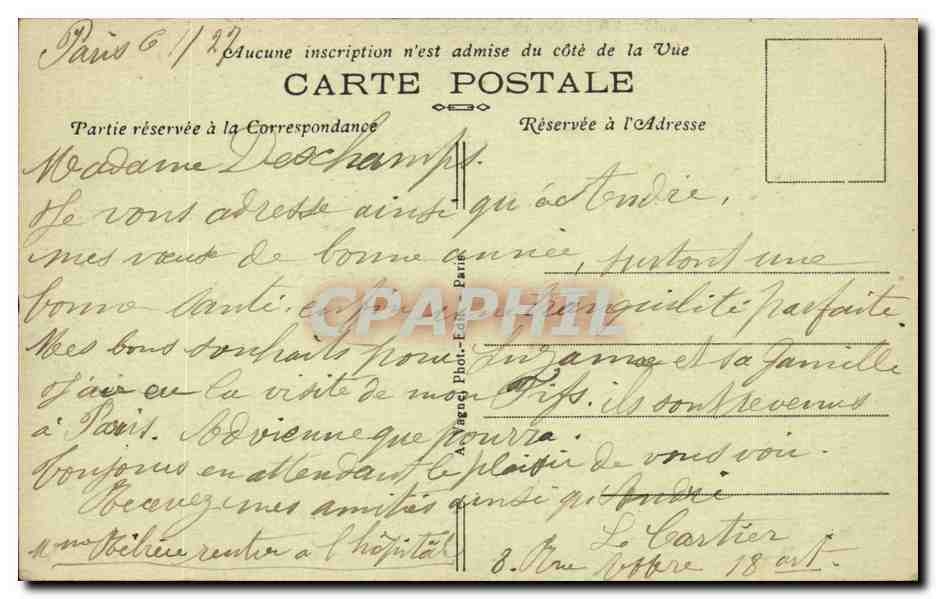 Paris 6/1/27
Aucune inscription n'est admise du côté de la Vue
CARTE POSTALE
Partie réservée à la Correspondance
Réservée à l'Adresse
Madame Deschamps.
Je vous adresse ainsi qu'à André,
mes vœux de bonne année, surtout une
bonne santé, enfin une tranquilité parfaite.
Mes bons souhaits pour Suzanne et sa famille
J'ai eu la visite de mon Fils. ils sont revenus
à Paris. Advienne que pourra.
Toujours en attendant le plaisir de vous voir.
Recevez mes amitiés ainsi qu'André
Le Cartier
Mme rentre à l'hôpital
8. Rue 18 art.
A. Vagne, Phot.-Edit. Paris.
CPAPHIL